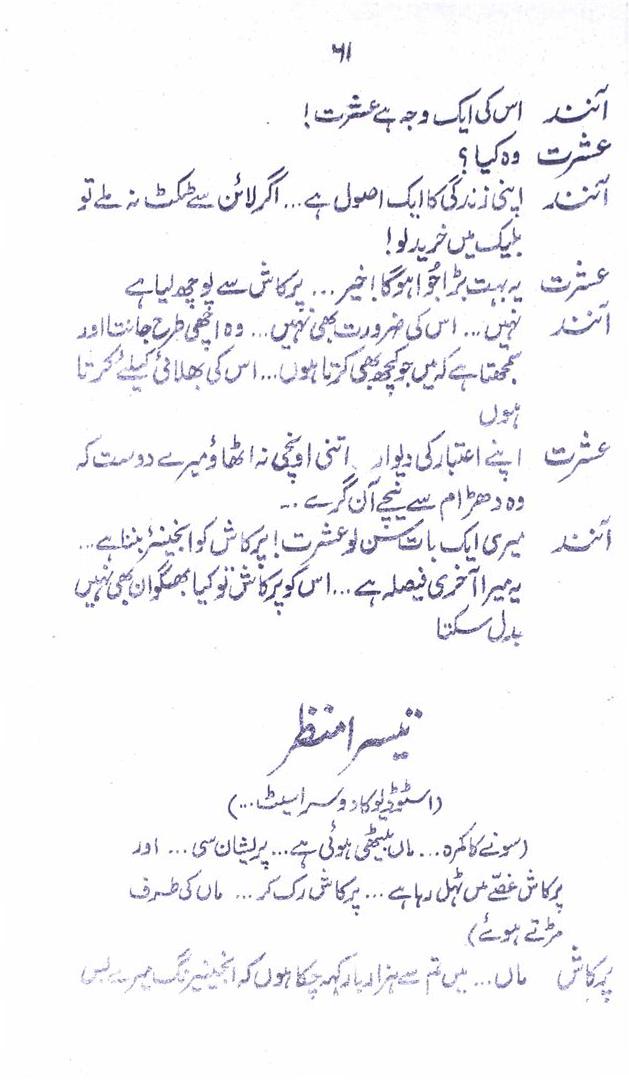 ۶۱
آنند اس کی ایک وجہ ہے عشرت!
عشرت وہ کیا؟
آنند اپنی زندگی کا ایک اصول ہے... اگر لائن سے ٹکٹ نہ ملے تو
بلیک میں خرید لو!
عشرت یہ بہت بڑا جُوا ہو گا! خیر... پرکاش سے پوچھ لیا ہے
آنند نہیں... اس کی ضرورت بھی نہیں... وہ اچھی طرح جانتا اور
سمجھتا ہے کہ میں جو کچھ بھی کرتا ہوں... اس کی بھلائی کیلئے کرتا
ہوں
عشرت اپنے اعتبار کی دیوار اتنی اونچی نہ اٹھاؤ میرے دوست کہ
وہ دھڑام سے نیچے آن گرے ..
آنند میری ایک بات سن لو عشرت! پرکاش کو انجینئر بننا ہے...
یہ میرا آخری فیصلہ ہے... اس کو پرکاش تو کیا بھگوان بھی نہیں
بدل سکتا
تیسرا منظر
(اسٹوڈیو کا دوسرا سیٹ...)
(سونے کا کمرہ... ماں بیٹھی ہوئی ہے... پریشان سی... اور
پرکاش غصّے میں ٹہل رہا ہے... پرکاش رک کر... ماں کی طرف
مڑتے ہوئے)
پرکاش ماں... میں تم سے ہزار بار کہہ چکا ہوں کہ انجینیرنگ میرے بس